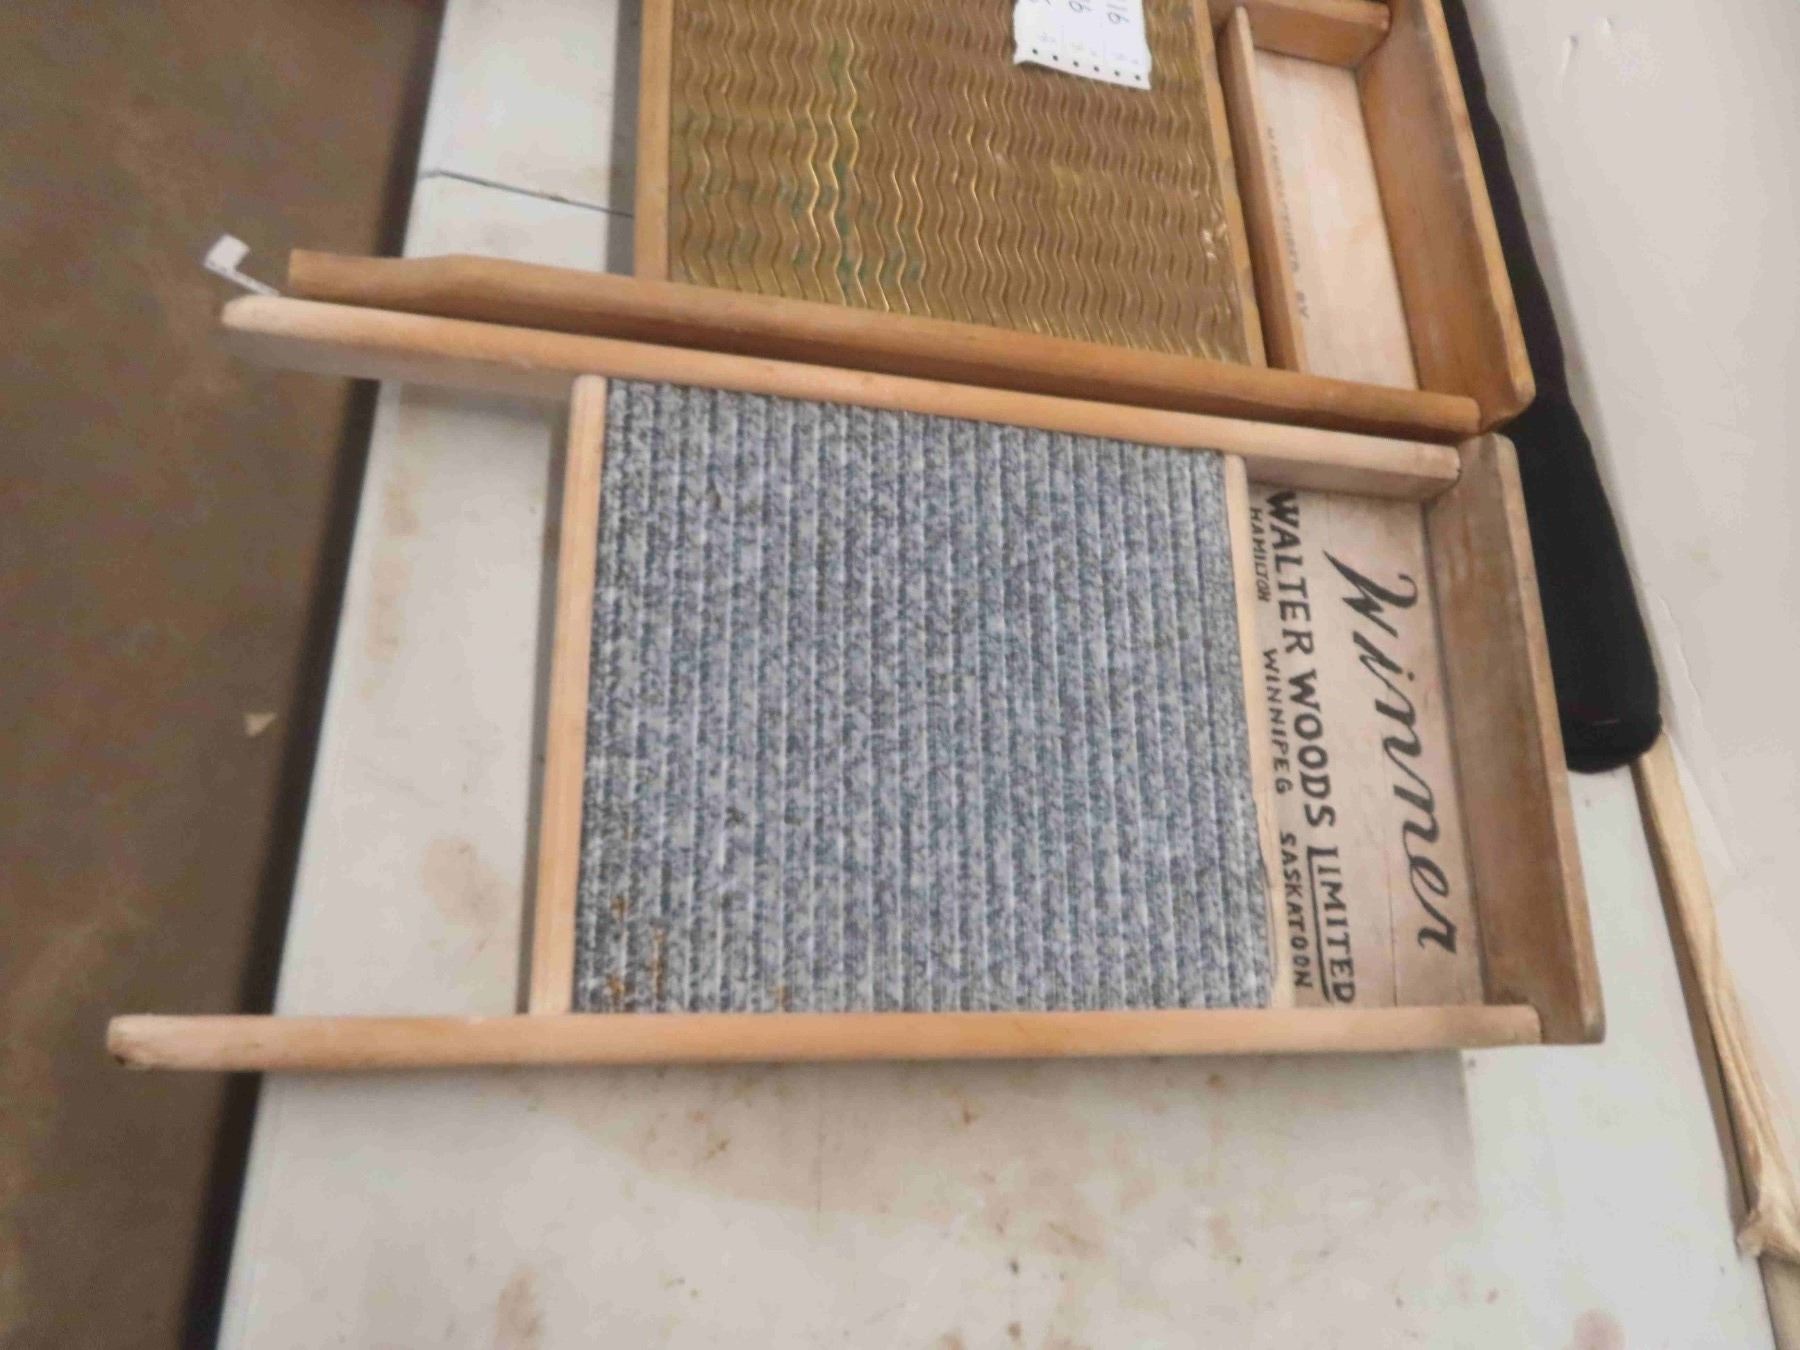 Winner
WALTER WOODS LIMITED
HAMILTON WINNIPEG SASKATOON
MANUFACTURED BY